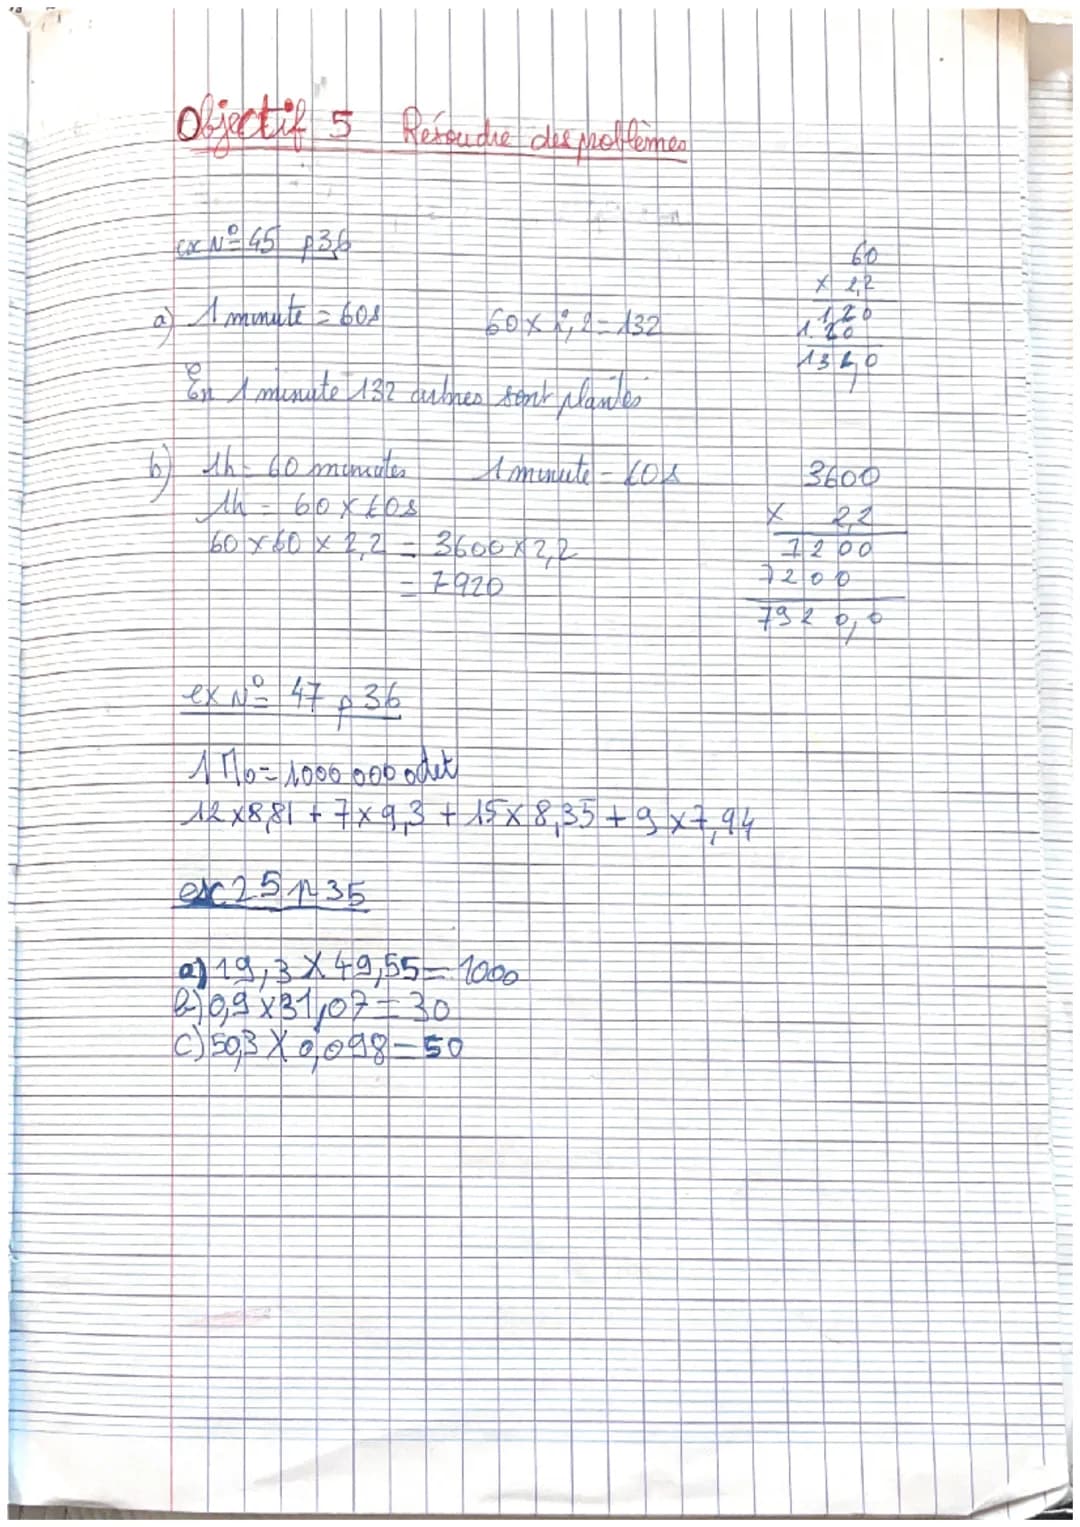 Objectif 5 Résoudre des problèmes
ex N° 45 p36
a) 1 minute = 60s 60 x 2,2 = 132
60
x 2,2
120
120
132,0
En 1 minute 132 arbres sont plantés
b) 1h = 60 minutes 1 minute = 60s
1h = 60 x 60s
60 x 60 x 2,2 = 3600 x 2,2
= 7920
3600
x 2,2
7200
7200
7920,0
ex N° 47 p 36
1 Mo = 1000 000 octet
12 x 8,81 + 7 x 9,3 + 15 x 8,35 + 9 x 7,94
ex 25 p 35
a) 19,3 x 49,55 = 1000
b) 0,9 x 31,07 = 30
c) 50,3 x 0,098 = 50